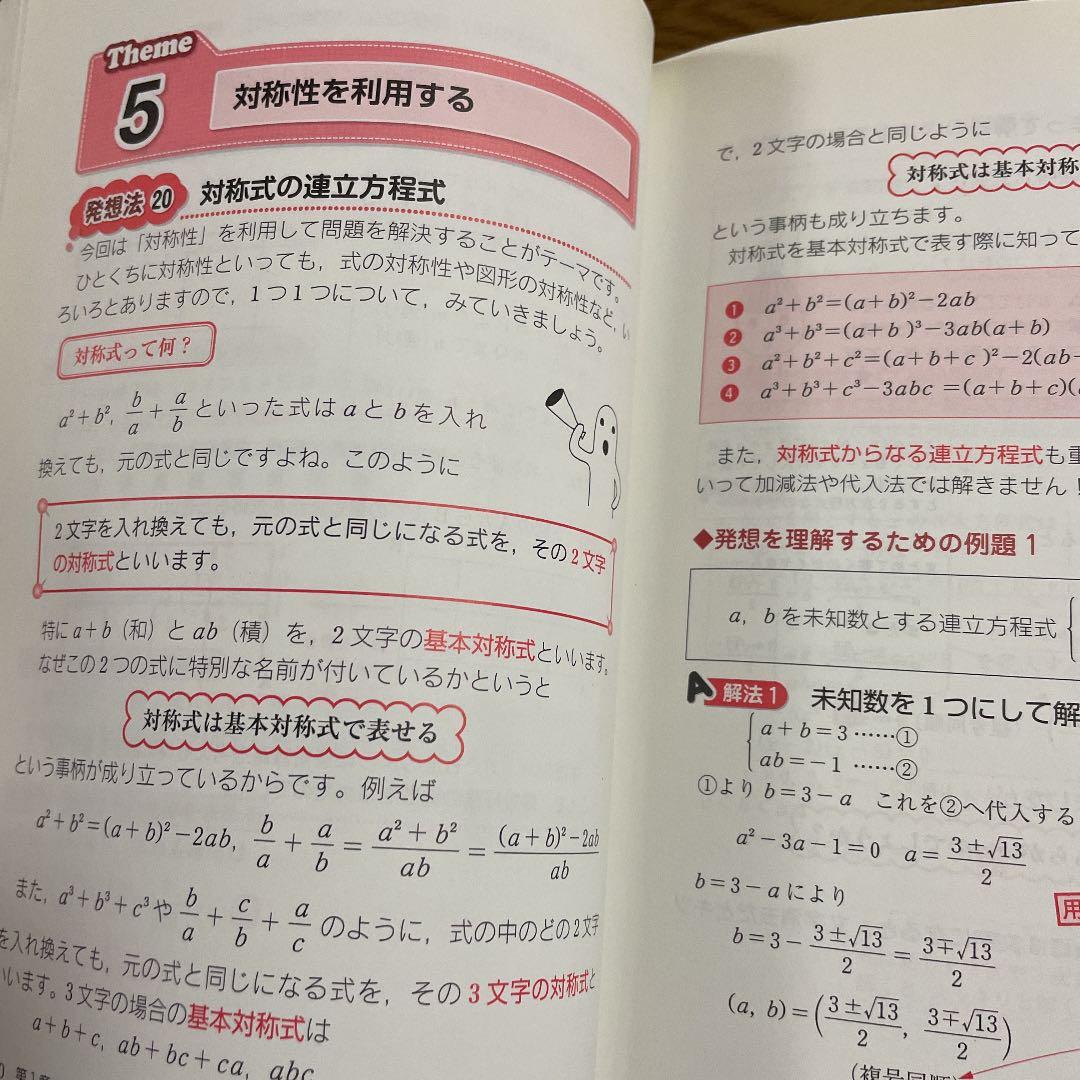 Theme
5
対称性を利用する
発想法 20 対称式の連立方程式
今回は「対称性」を利用して問題を解決することがテーマです。
ひとくちに対称性といっても，式の対称性や図形の対称性など，い
ろいろとありますので，1つ1つについて，みていきましょう。
対称式って何？
a²+b², b/a + a/b といった式は a と b を入れ
換えても，元の式と同じですよね。このように
2文字を入れ換えても，元の式と同じになる式を，その2文字
の対称式といいます。
特に a+b（和）と ab（積）を，2文字の基本対称式といいます。
なぜこの2つの式に特別な名前が付いているかというと
対称式は基本対称式で表せる
という事柄が成り立っているからです。例えば
a²+b²=(a+b)²−2ab, b/a + a/b = (a²+b²)/ab = ((a+b)²−2ab)/ab
また，a³+b³+c³ や b/a + c/b + a/c のように，式の中のどの2文字
を入れ換えても，元の式と同じになる式を，その3文字の対称式と
います。3文字の場合の基本対称式は
a+b+c, ab+bc+ca, abc
で，2文字の場合と同じように
対称式は基本対称
という事柄も成り立ちます。
対称式を基本対称式で表す際に知って
❶ a²+b²=(a+b)²−2ab
❷ a³+b³=(a+b)³−3ab(a+b)
❸ a²+b²+c²=(a+b+c)²−2(ab
❹ a³+b³+c³−3abc=(a+b+c)(
また，対称式からなる連立方程式も
いって加減法や代入法では解きません！
◆発想を理解するための例題1
a，b を未知数とする連立方程式
A 解法1 未知数を1つにして解
a+b=3 ……①
ab=−1 ……②
①より b=3−a これを②へ代入する
a²−3a−1=0 a=(3±√13)/2
b=3−a により
用
b=3−(3±√13)/2=(3∓√13)/2
(a, b)=((3±√13)/2, (3∓√13)/2)
(複号同順)